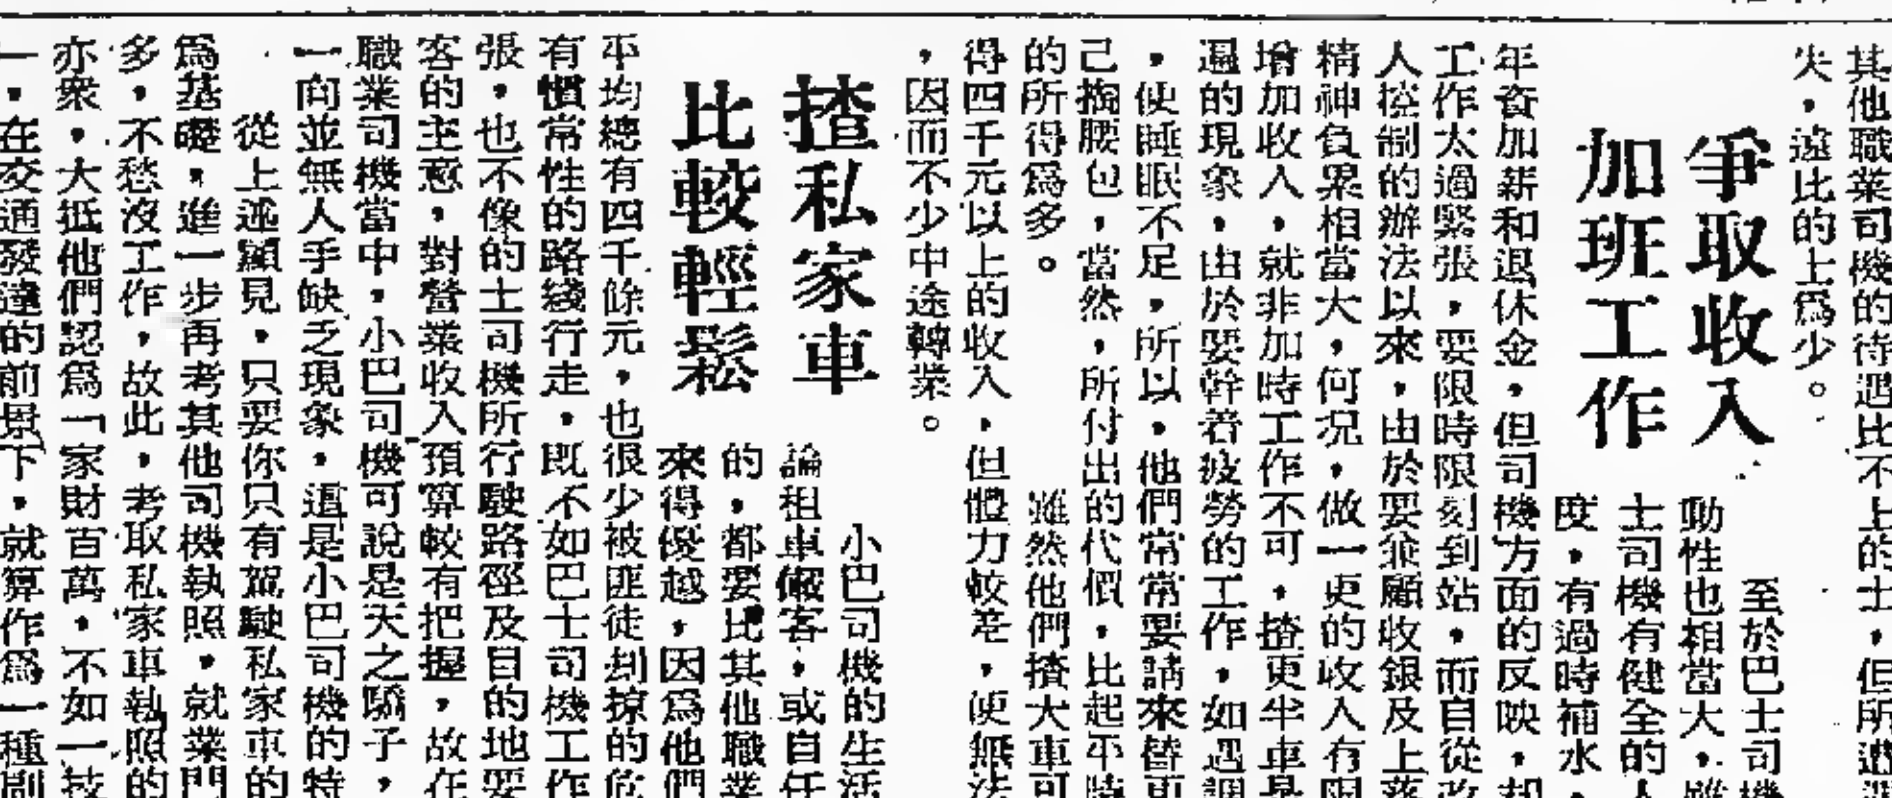 其他職業司機的待遇比不上的士，但所遭遇
失，遠比的上爲少。
爭取收入
加班工作
至於巴士司機
動性也相當大，雖
士司機有健全的人
度，有過時補水，
年資加薪和退休金，但司機方面的反映，却
工作太過緊張，要限時限刻到站，而自從改
人控制的辦法以來，由於要兼顧收銀及上落
精神負累相當大，何況，做一更的收入有限
增加收入，就非加時工作不可，揸更半車是
遍的現象，由於要幹着疲勞的工作，如遇調
，使睡眠不足，所以，他們常常要請來替更
己掏腰包，當然，所付出的代價，比起平時
的所得爲多。
雖然他們揸大車可
得四千元以上的收入，但體力較差，便無法
，因而不少中途轉業。
揸私家車
比較輕鬆
小巴司機的生活
論租車儎客，或自任
的，都要比其他職業
來得優越，因爲他們
平均總有四千餘元，也很少被匪徒刦掠的危
有慣常性的路綫行走，既不如巴士司機工作
張，也不像的士司機所行駛路徑及目的地要
客的主意，對營業收入預算較有把握，故在
職業司機當中，小巴司機可說是天之驕子，
一向並無人手缺乏現象，這是小巴司機的特
從上述顯見，只要你只有駕駛私家車的
爲基礎，進一步再考其他司機執照，就業門
多，不愁沒工作，故此，考取私家車執照的
亦衆，大抵他們認爲「家財百萬，不如一技
一，在交通發達的前景下，就算作爲一種副